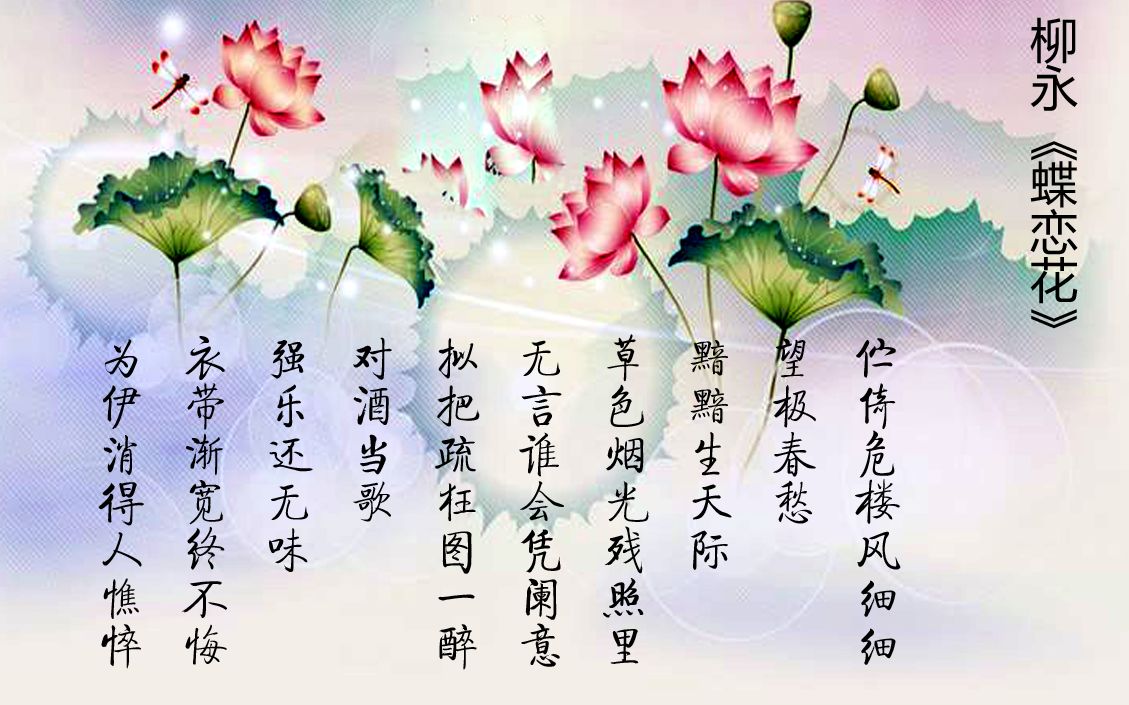 柳永《蝶恋花》
伫倚危楼风细细
望极春愁
黯黯生天际
草色烟光残照里
无言谁会凭阑意
拟把疏枉图一醉
对酒当歌
强乐还无味
衣带渐宽终不悔
为伊消得人憔悴